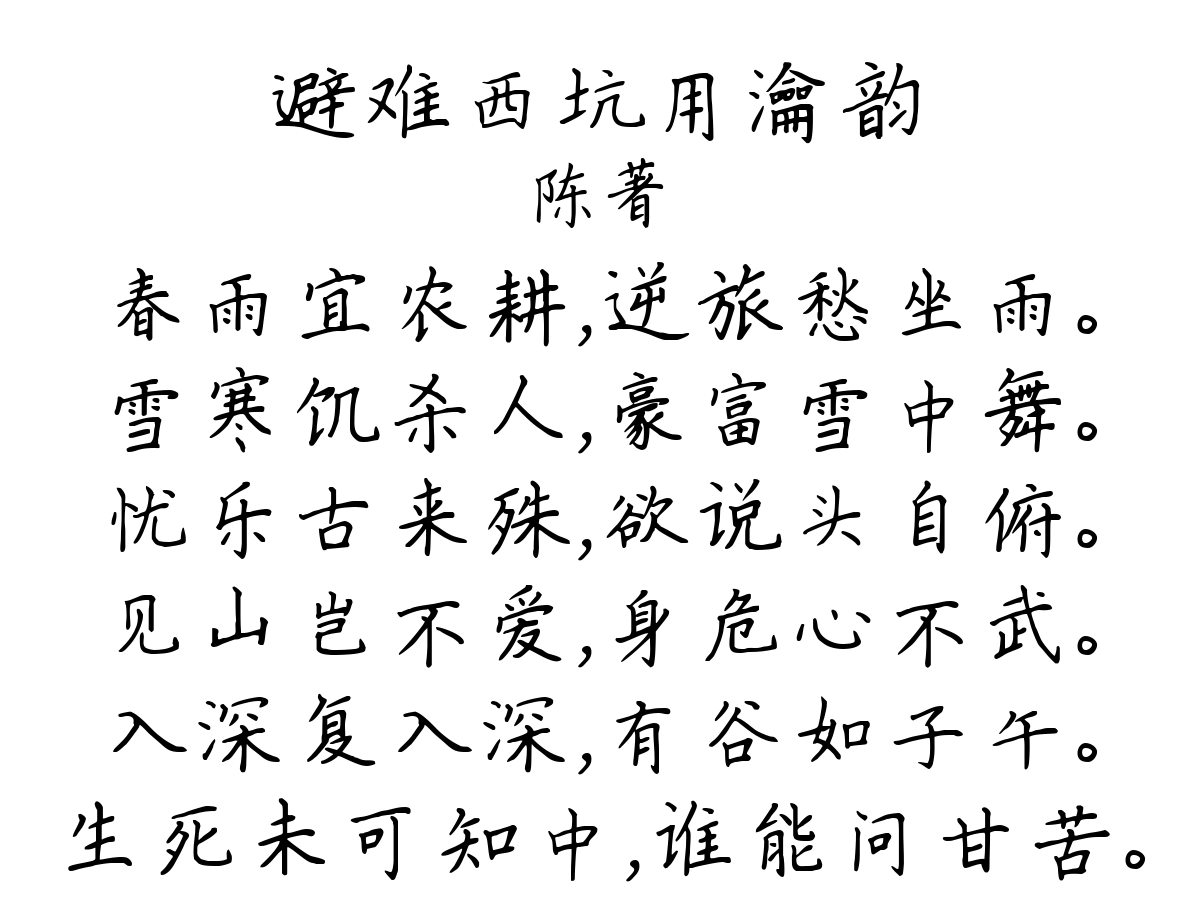 避难西坑用瀹韵
陈著
春雨宜农耕,逆旅愁坐雨。
雪寒饥杀人,豪富雪中舞。
忧乐古来殊,欲说头自俯。
见山岂不爱,身危心不武。
入深复入深,有谷如子午。
生死未可知中,谁能问甘苦。